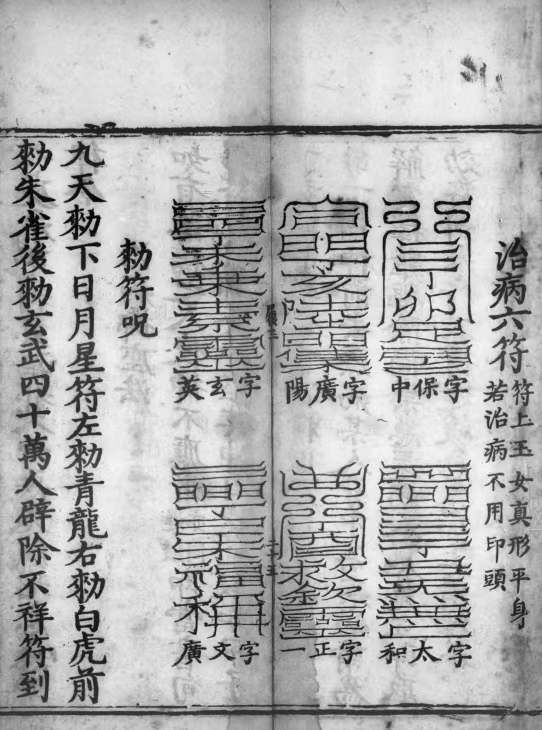 治病六符
符上玉女真形平身
若治病不用印頭
字保中
字廣陽
字玄英
字太和
字正一
字文廣
勑符呪
九天勑下日月星符左勑青龍右勑白虎前
勑朱雀後勑玄武四十萬人辟除不祥符到